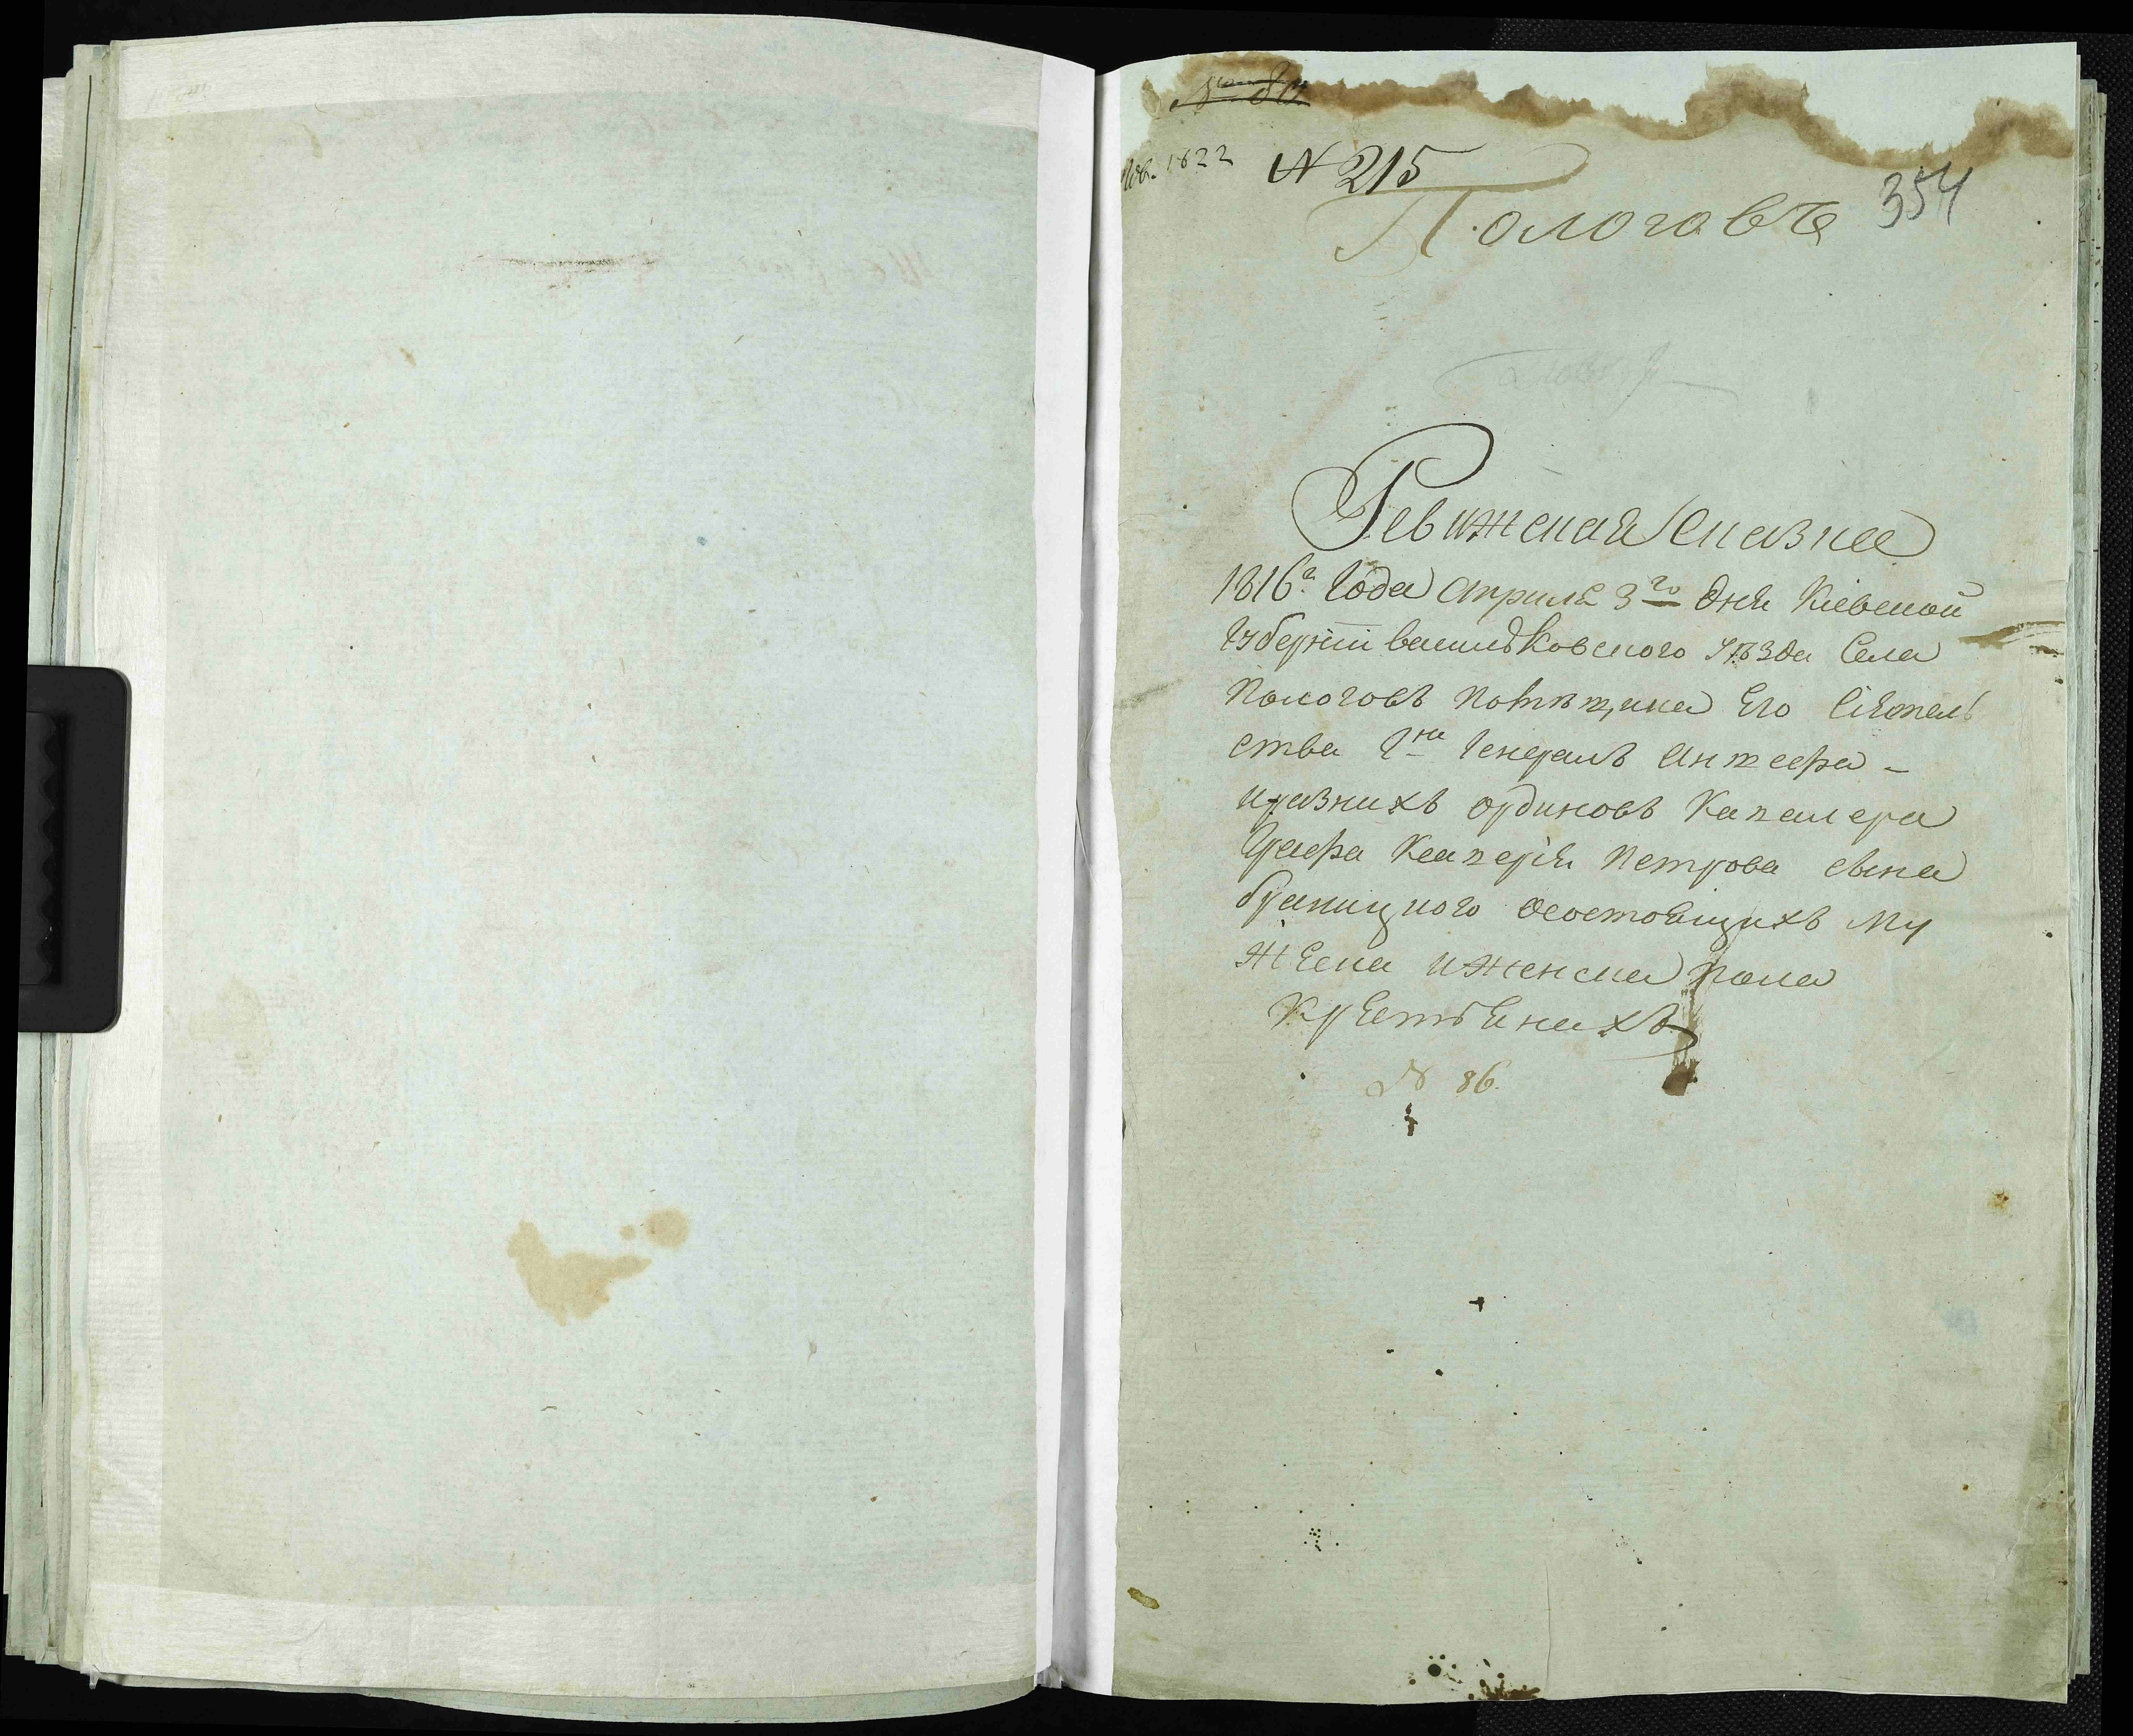 № 80
1822 № 215
354
Пологовъ
Ревижская Сказка
1816г. Года Априля 3го дня Кіевской
Губерніи василъковского уѣзда Села
Пологовъ Помѣщика Его Сіятель
ства Гна Генералъ Аншефа -
иразнихъ ординовъ Кавалера
Графа Ксаверія Петрова сына
браницкого осостоящихъ му
жеска иженска пола
Крестянахъ
№ 86.